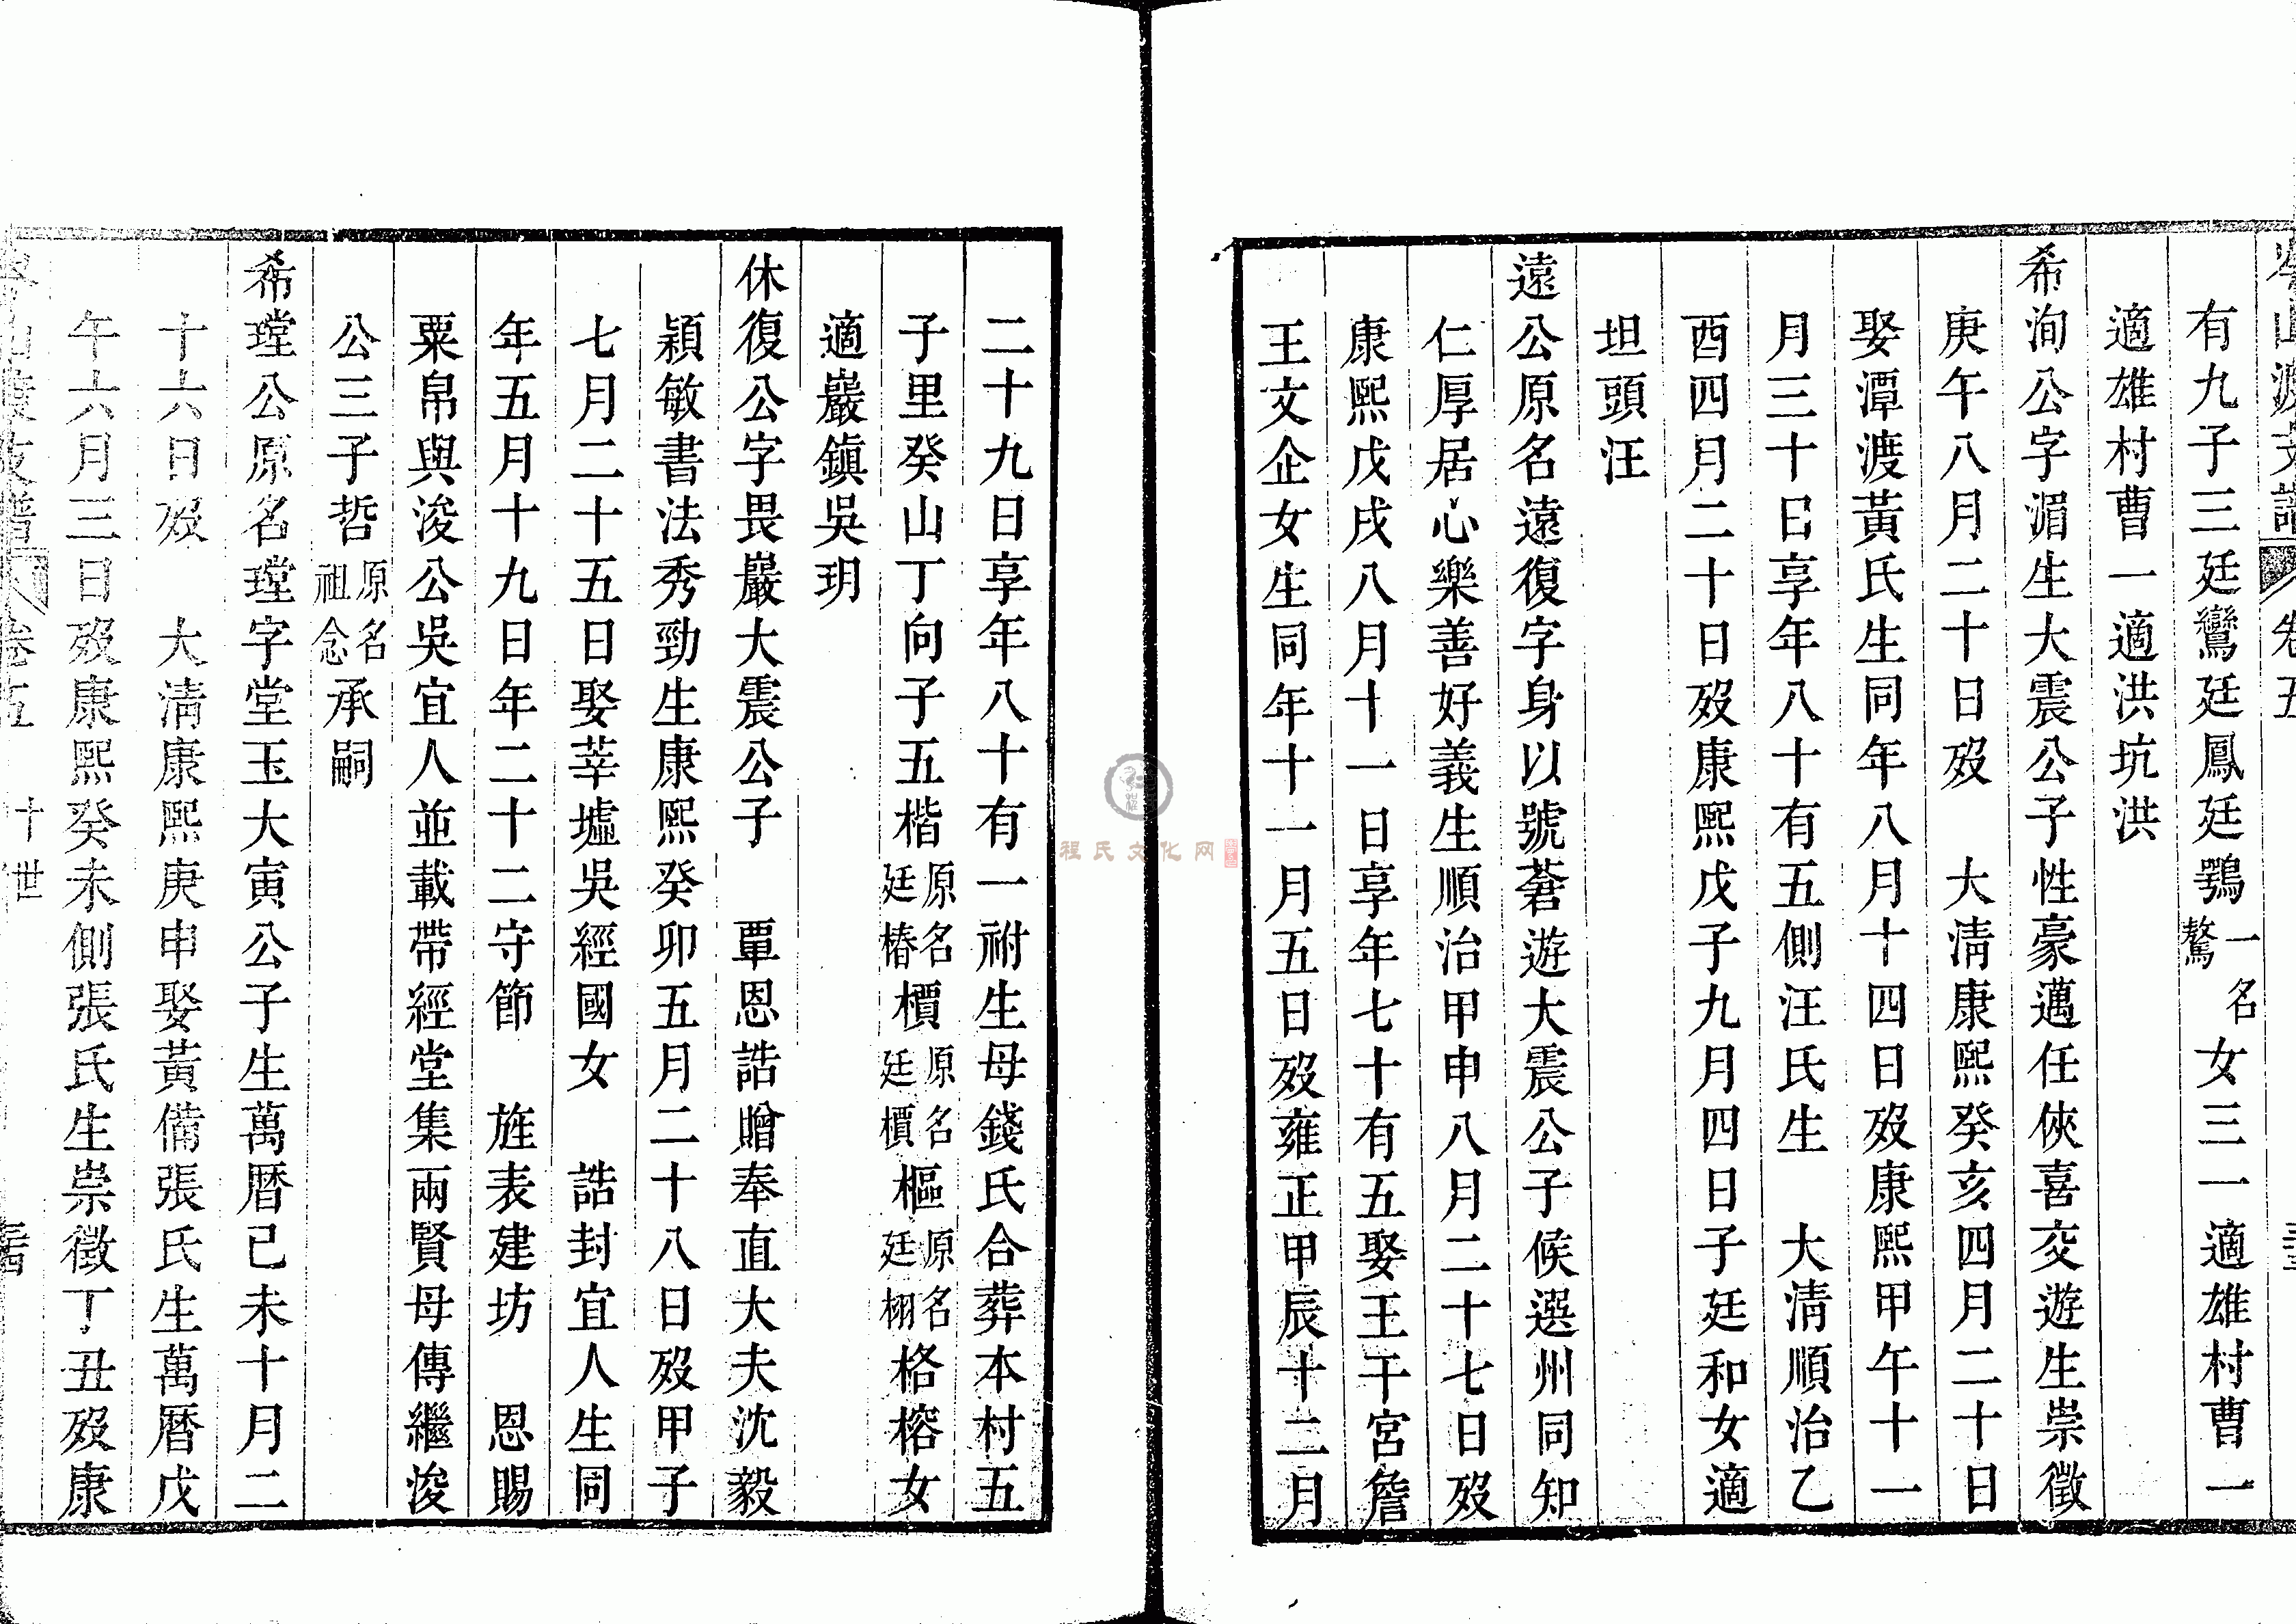 有九子三廷鸞廷鳳廷鶚一名鶩女三一適雄村曹一
適雄村曹一適洪坑洪
希洵公字湄生大震公子性豪邁任俠喜交遊生崇徵
庚午八月二十日歿　大清康熙癸亥四月二十日
娶潭渡黃氏生同年八月十四日歿康熙甲午十一
月三十日享年八十有五側汪氏生　大清順治乙
酉四月二十日歿康熙戊子九月四日子廷和女適
坦頭汪
遠公原名遠復字身以號蒼遊大震公子候選州同知
仁厚居心樂善好義生順治甲申八月二十七日歿
康熙戊戌八月十一日享年七十有五娶王干宮詹
王文企女生同年十一月五日歿雍正甲辰十二月
二十九日享年八十有一祔生母錢氏合葬本村五
子里癸山丁向子五楷原名廷椿檟原名廷檟樞原名廷栩格榕女
適巖鎮吳玥
休復公字畏巖大震公子　覃恩誥贈奉直大夫沈毅
穎敏書法秀勁生康熙癸卯五月二十八日歿甲子
七月二十五日娶莘墟吳經國女　誥封宜人生同
年五月十九日年二十二守節　旌表建坊　恩賜
粟帛與浚公吳宜人並載帶經堂集兩賢母傳繼浚
公三子哲原名祖念承嗣
希瑝公原名瑝字堂玉大寅公子生萬曆己未十月二
十六日歿　大清康熙庚申娶黃備張氏生萬曆戊
午六月三日歿康熙癸未側張氏生崇徵丁丑歿康
卷五　十世
程氏文化网